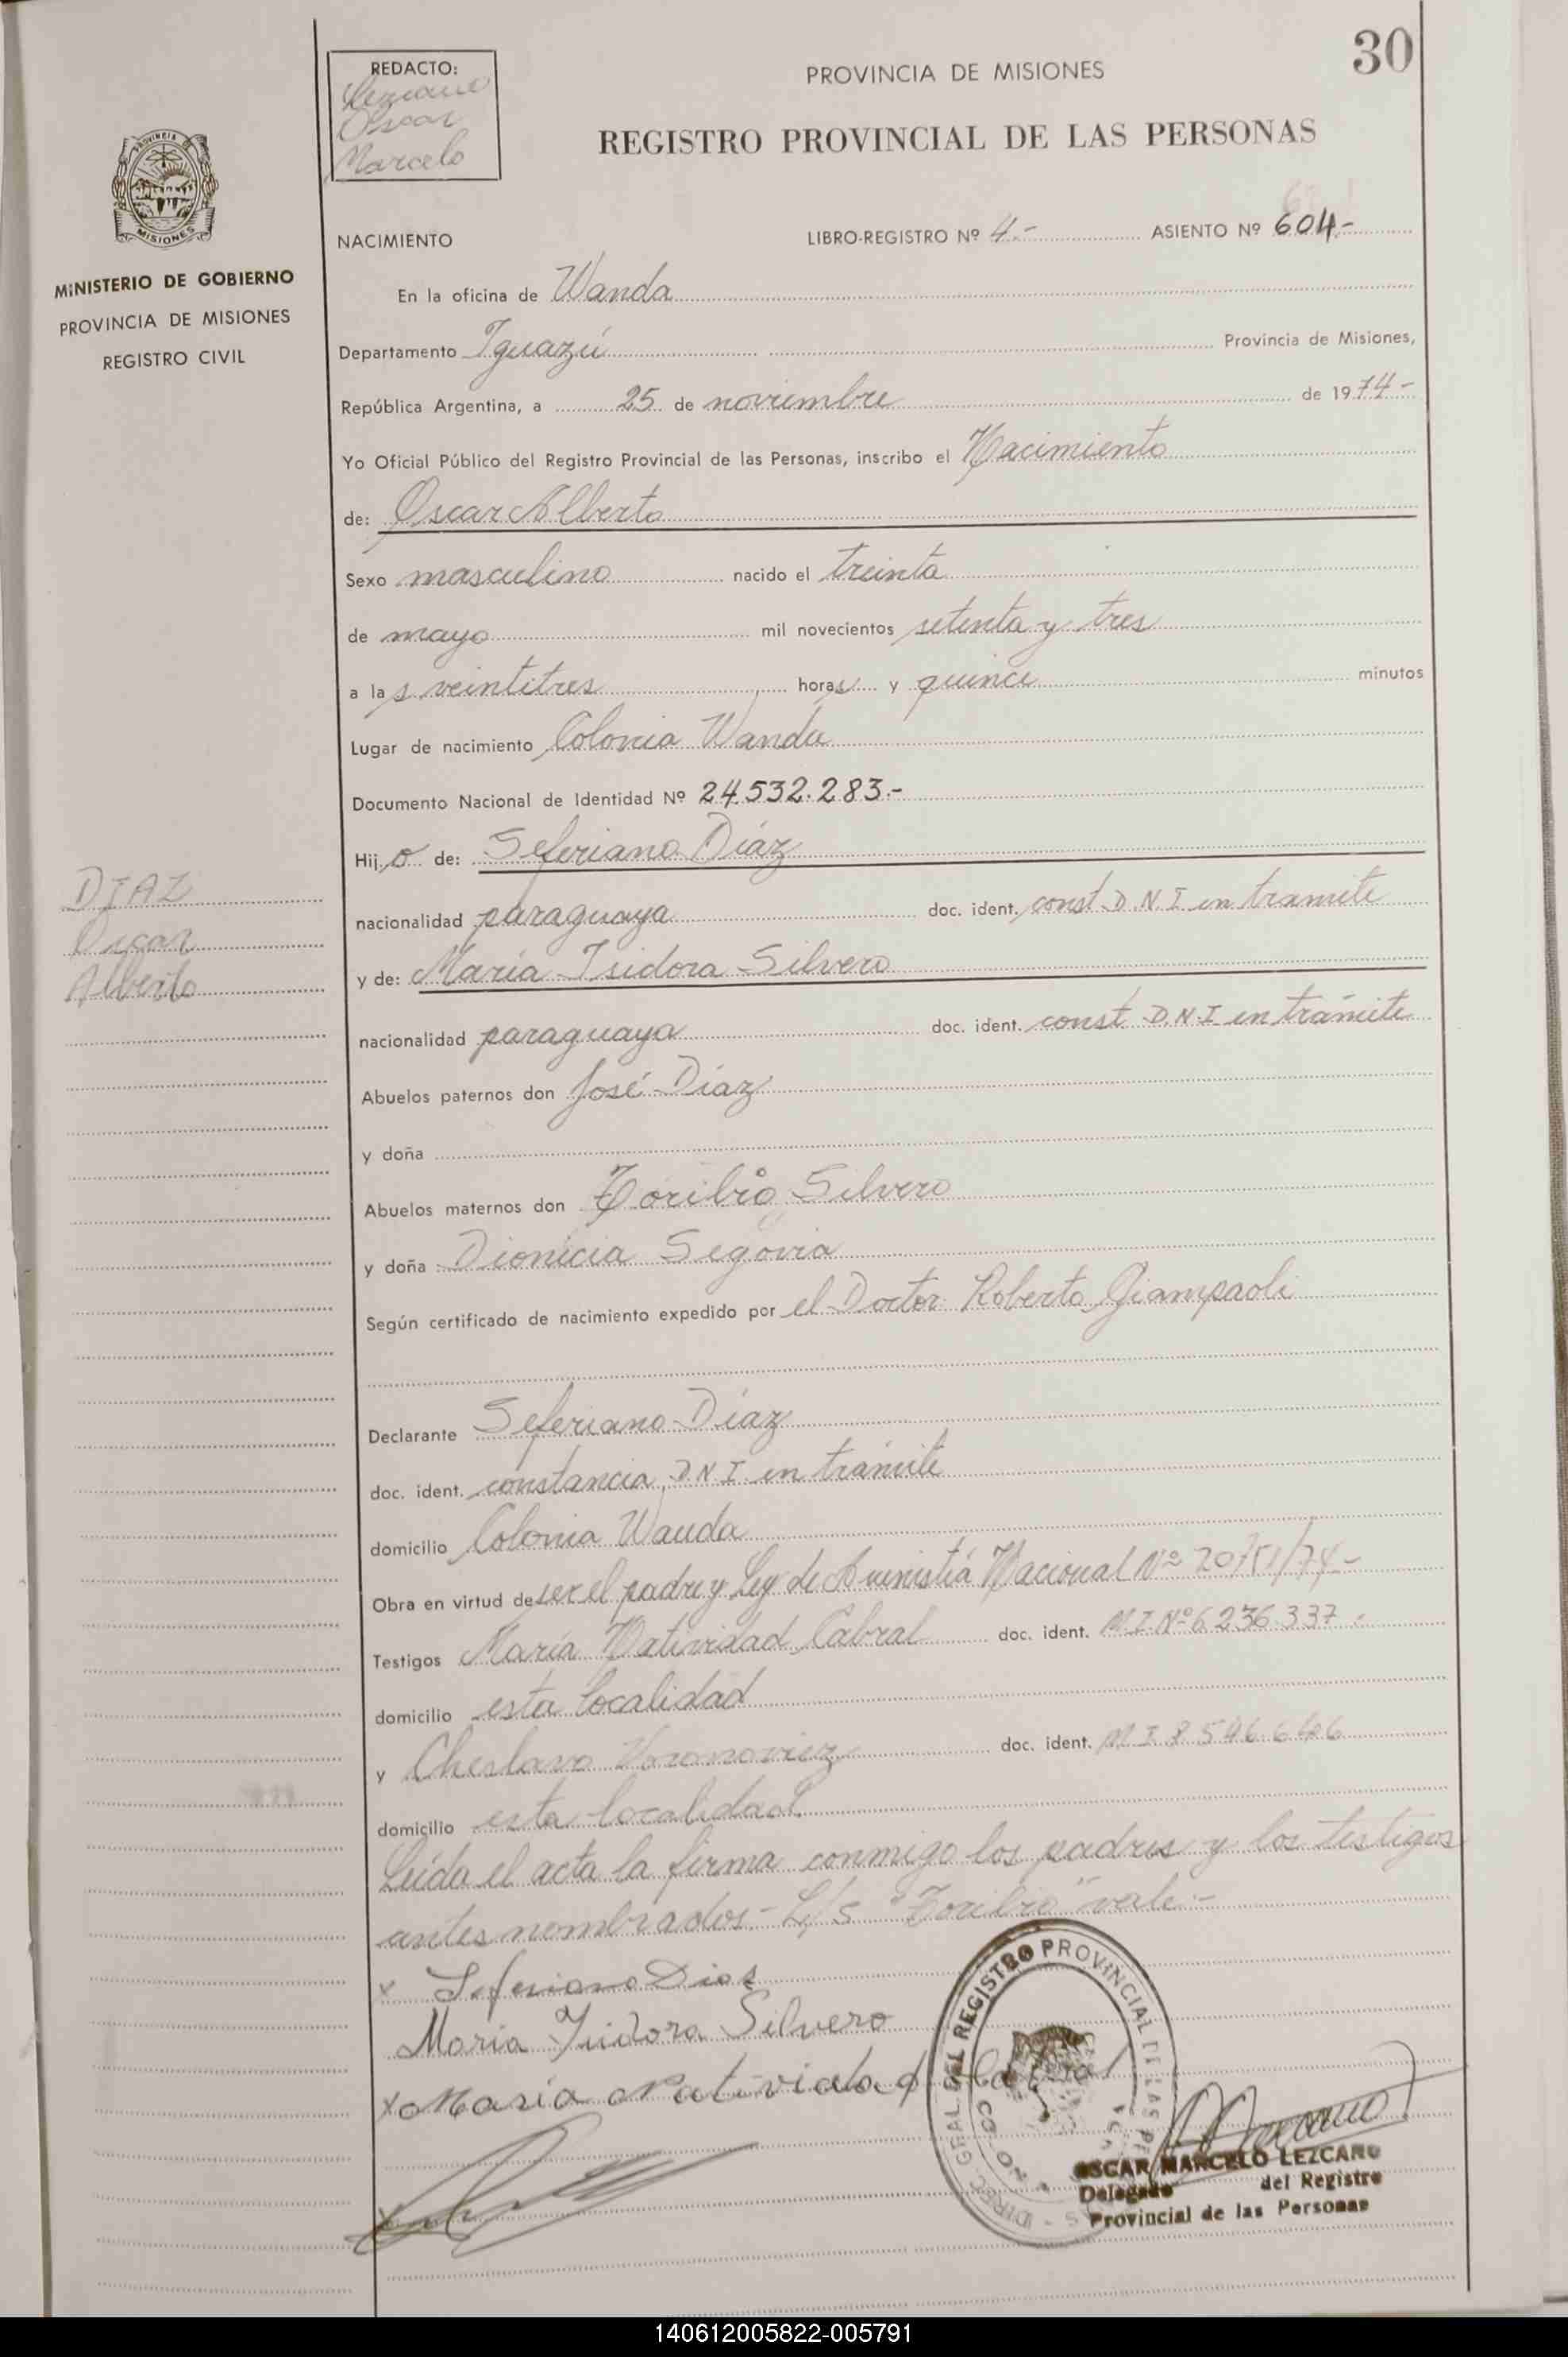 30
REDACTO:
Lezcano
Oscar
Marcelo
PROVINCIA DE MISIONES
REGISTRO PROVINCIAL DE LAS PERSONAS
PROVINCIA DE
MISIONES
MINISTERIO DE GOBIERNO
PROVINCIA DE MISIONES
REGISTRO CIVIL
NACIMIENTO LIBRO-REGISTRO Nº 4.- ASIENTO Nº 604-
En la oficina de Wanda
Departamento Iguazú Provincia de Misiones,
República Argentina, a 25 de noviembre de 1974-
Yo Oficial Público del Registro Provincial de las Personas, inscribo el Nacimiento
de: Oscar Alberto
Sexo masculino nacido el treinta
de mayo mil novecientos setenta y tres
a las veintitres horas y quince minutos
Lugar de nacimiento Colonia Wanda
Documento Nacional de Identidad Nº 24.532.283.-
Hijo de: Seferiano Díaz
DIAZ
Oscar
Alberto
nacionalidad paraguaya doc. ident. const. D.N.I en tramite
y de: María Isidora Silvero
nacionalidad paraguaya doc. ident. const D.N.I en trámite
Abuelos paternos don José Díaz
y doña
Abuelos maternos don Toribio Silvero
y doña Dionicia Segovia
Según certificado de nacimiento expedido por el Doctor Roberto Giampaoli
Declarante Seferiano Díaz
doc. ident. constancia D.N.I en trámite
domicilio Colonia Wanda
Obra en virtud de ser el padre y Ley de Amnistía Nacional Nº 20751/74-
Testigos María Natividad Cabral doc. ident. M.I. Nº 6.236.337.
domicilio esta localidad
y Cheslavo Voronoviez doc. ident. M.I. 8.546.646
domicilio esta localidad
Leída el acta la firma conmigo los padres y los testigos
antes nombrados- L/S "Toribio" vale-
x Seferiano Dias
Maria Isidora Silvero
x Maria Natividad Cabral
DIREC. GRAL DEL REGISTRO PROVINCIAL DE LAS
OSCAR MARCELO LEZCANO
Delegado del Registro
Provincial de las Personas
140612005822-005791